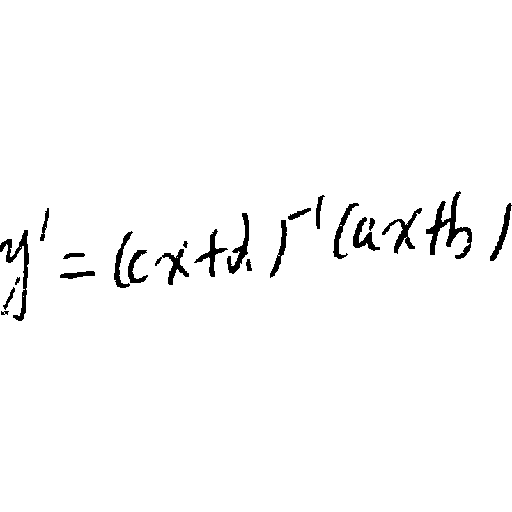 y' = (cx+d)^{-1}(ax+b)